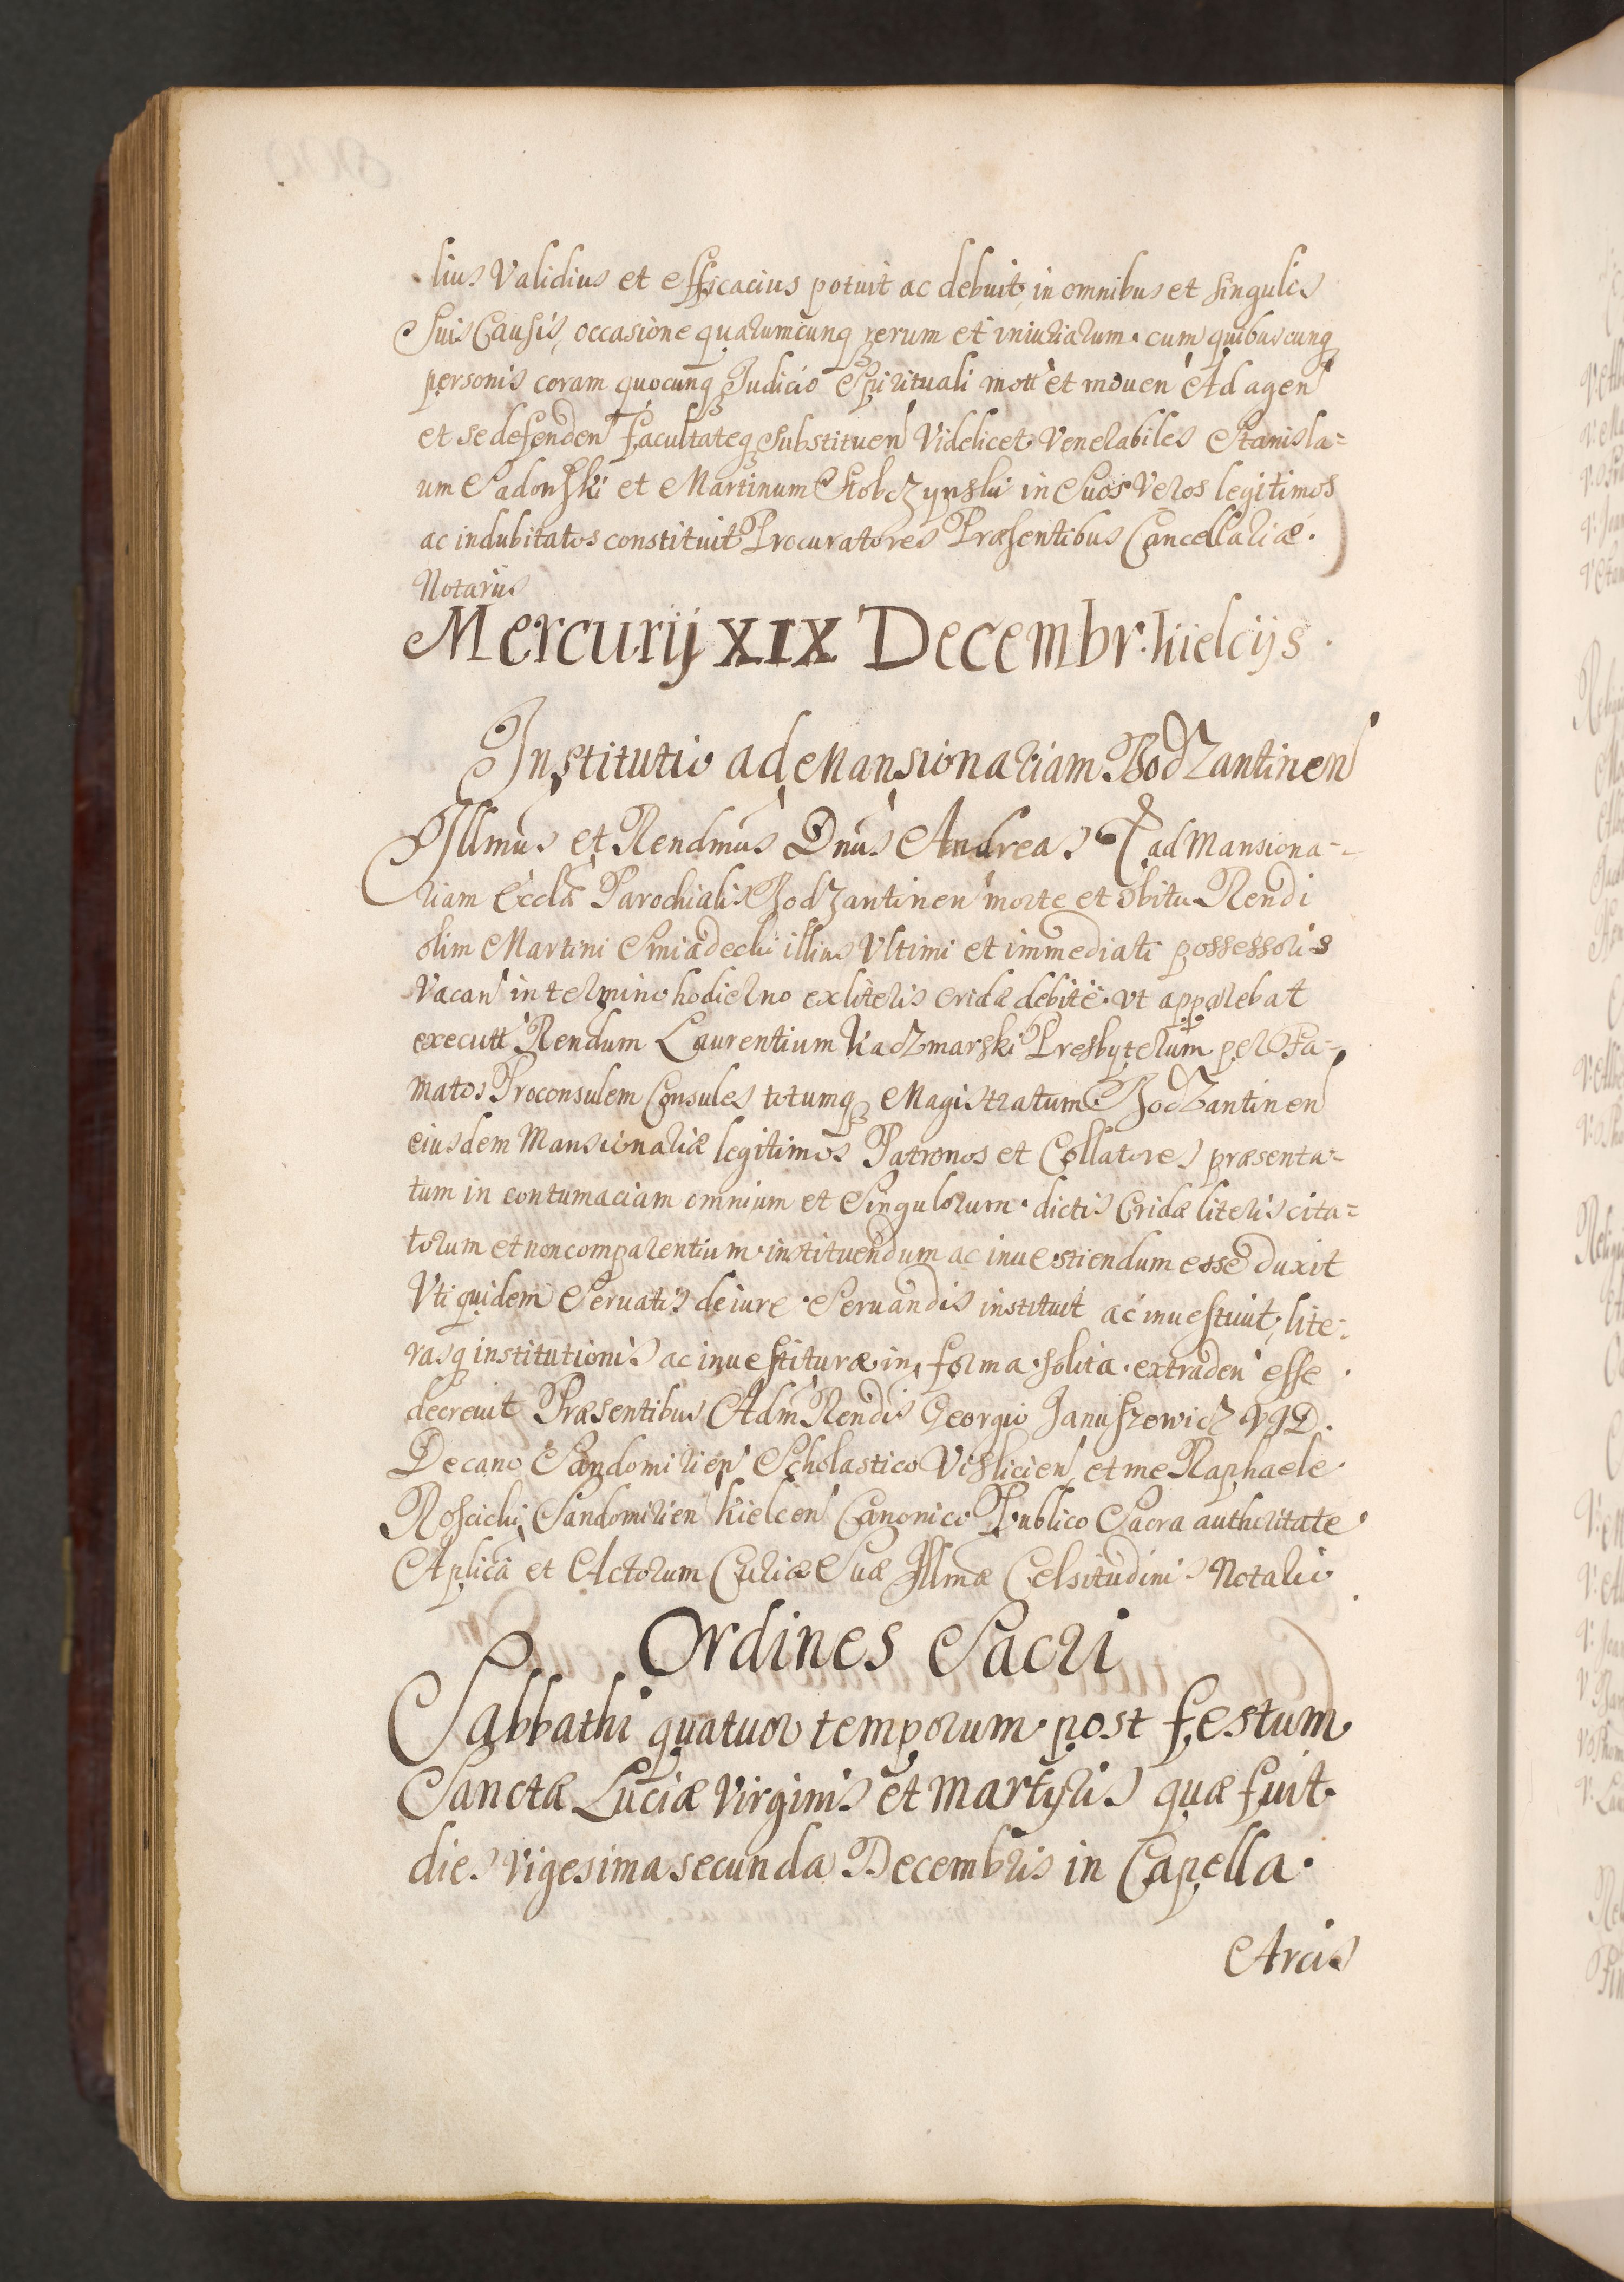 lius Validius et efficacius potuit ac debuit, in omnibus et singulis
suis Causis, occasione quarumcunq rerum et iniuriarum. cum quibuscunq
personis coram quocunq Judicio Spirituali mott et mouen Ad agen
et se defenden facultateq substituen Videlicet Venerabiles Stanisla=
um Sadowski et Martinum Stobczynski in Suos Veros legitimos
ac indubitatos constituit Procuratores Præsentibus Cancellariæ.
Notarijs
Mercurij XIX Decembr. kielcijs.
Institutio ad Mansionariam Bodzantinen
Illmus et Rendmus Dnus Andreas ad Mansiona=
riam Eccla Parochialis Bodzantinen morte et obitu Rendi
olim Martini Smiadecki illius Vltimi et immediati possessoris
Vacan in termino hodierno ex literis cridæ debite. vt apparebat
executt Rendum Laurentium Kaczmarski Presbyterum per Fa=
matos Proconsulem Consules totumq Magistratum Bodzantinen
eiusdem Mansionariæ legitimos Patronos et Collatores præsenta=
tum in contumaciam omnium et Singulorum. dictis Cridæ literis cita=
torum et non comparentium. instituendum ac inuestiendum esse duxit
Vti quidem Seruatis de iure Seruandis instituit ac inuestiuit, lite=
rasq institutionis ac inuestituræ in forma solita. extraden esse.
decreuit Præsentibus Adm Rendis Georgio Januszowicz VJD.
Decano Sandomirien Scholastico Vislicien, et me Raphaele
Roscicki, Sandomirien kielcen Canonico Publico Sacra authoritate
Aplica et Actorum Curiæ Suæ Illmæ Celsitudinis Notario
Ordines Sacri
Sabbathi quatuor temporum. post festum
Sanctæ Luciæ Virginis et Martyris quæ fuit.
dies vigesima secunda Decembris in Capella.
Arcis